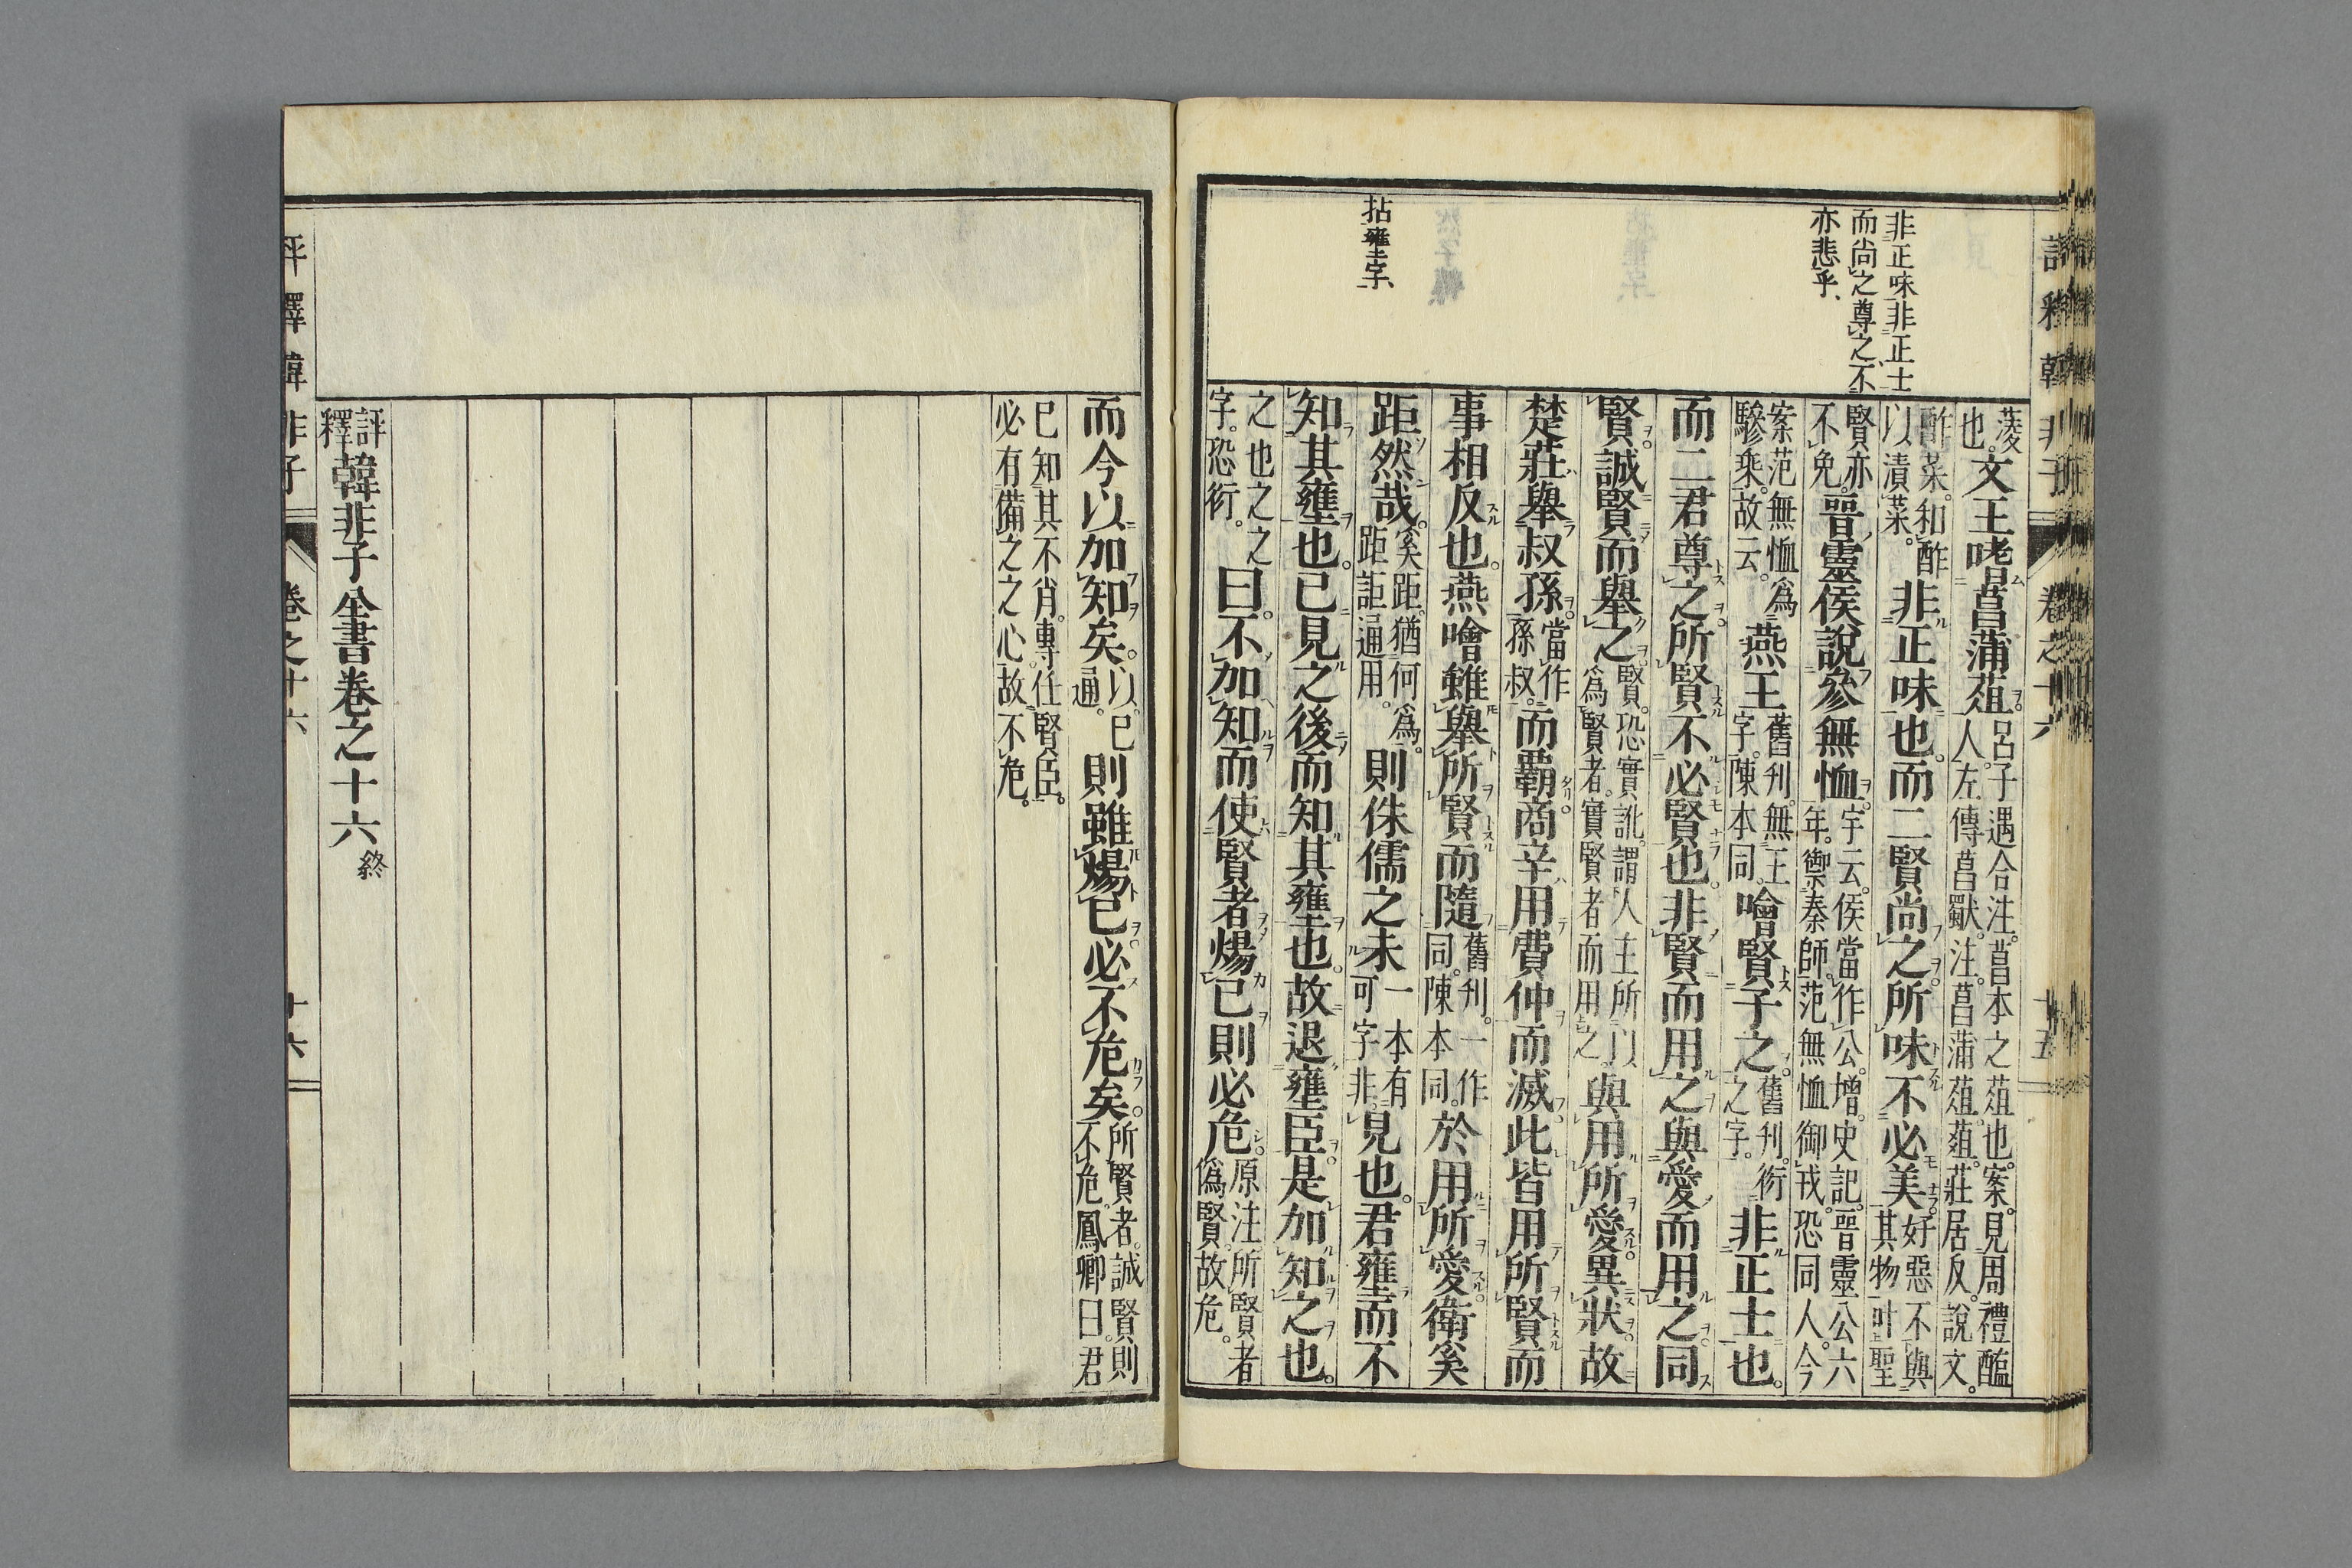 評釋韓非子
卷之十六
十五
非正味非正士
而尚之尊之不
亦悲乎、
拈壅字、
菱也。文王嗜菖蒲葅。呂子遇合注。菖本之葅也。案。見周禮醢人。左傳菖歜。注。菖蒲葅。葅。莊居反。說文。
酢菜。和酢以漬菜。非正味也。而二賢尚之。所味不必美。好惡不與其物叶。聖
賢亦不免。晉靈侯說參無恤。宇云。侯當作公。增。史記。晉靈公六年。御秦師。范無恤御戎。恐同人。今
案范無恤爲驂乘。故云。燕王舊刋。無王字。陳本同。噲賢子之。舊刋。衍之字。非正士也。
而二君尊之。所賢不必賢也。非賢而用之。與愛而用之同。
賢誠賢而舉之。賢。恐實訛。謂人主所以爲賢者。實賢者而用之。與用所愛異狀。故
楚莊舉叔孫。當作孫叔。而霸。商辛用費仲而滅。此皆用所賢而
事相反也。燕噲雖舉所賢。而隨舊刋。一作同。陳本同。於用所愛。衛奚
距然哉。奚距。猶何爲。距詎通用。則侏儒之未一本有可字非。見也。君壅而不
知其壅也。已見之後。而知其壅也。故退壅臣。是加知之也。
之也之之字。恐衍。曰。不加知而使賢者煬己則必危。原注。所賢者僞賢。故危。
而今以加知矣。以。已通。則雖煬己。必不危矣。所賢者。誠賢則不危。鳳卿曰。君
已知其不肖。專任賢臣。必有備之之心。故不危。
評釋韓非子全書卷之十六終
評釋韓非子
卷之十六
十六